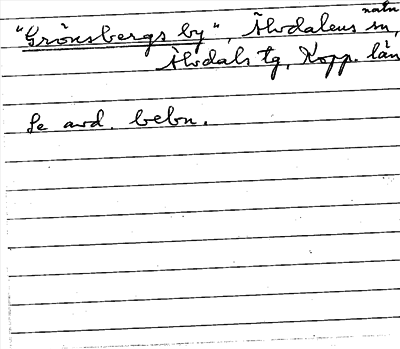 natn
"Grönsbergs by", Älvdalens sn,
Älvdals tg, Kopp. län
Se avd. bebn.